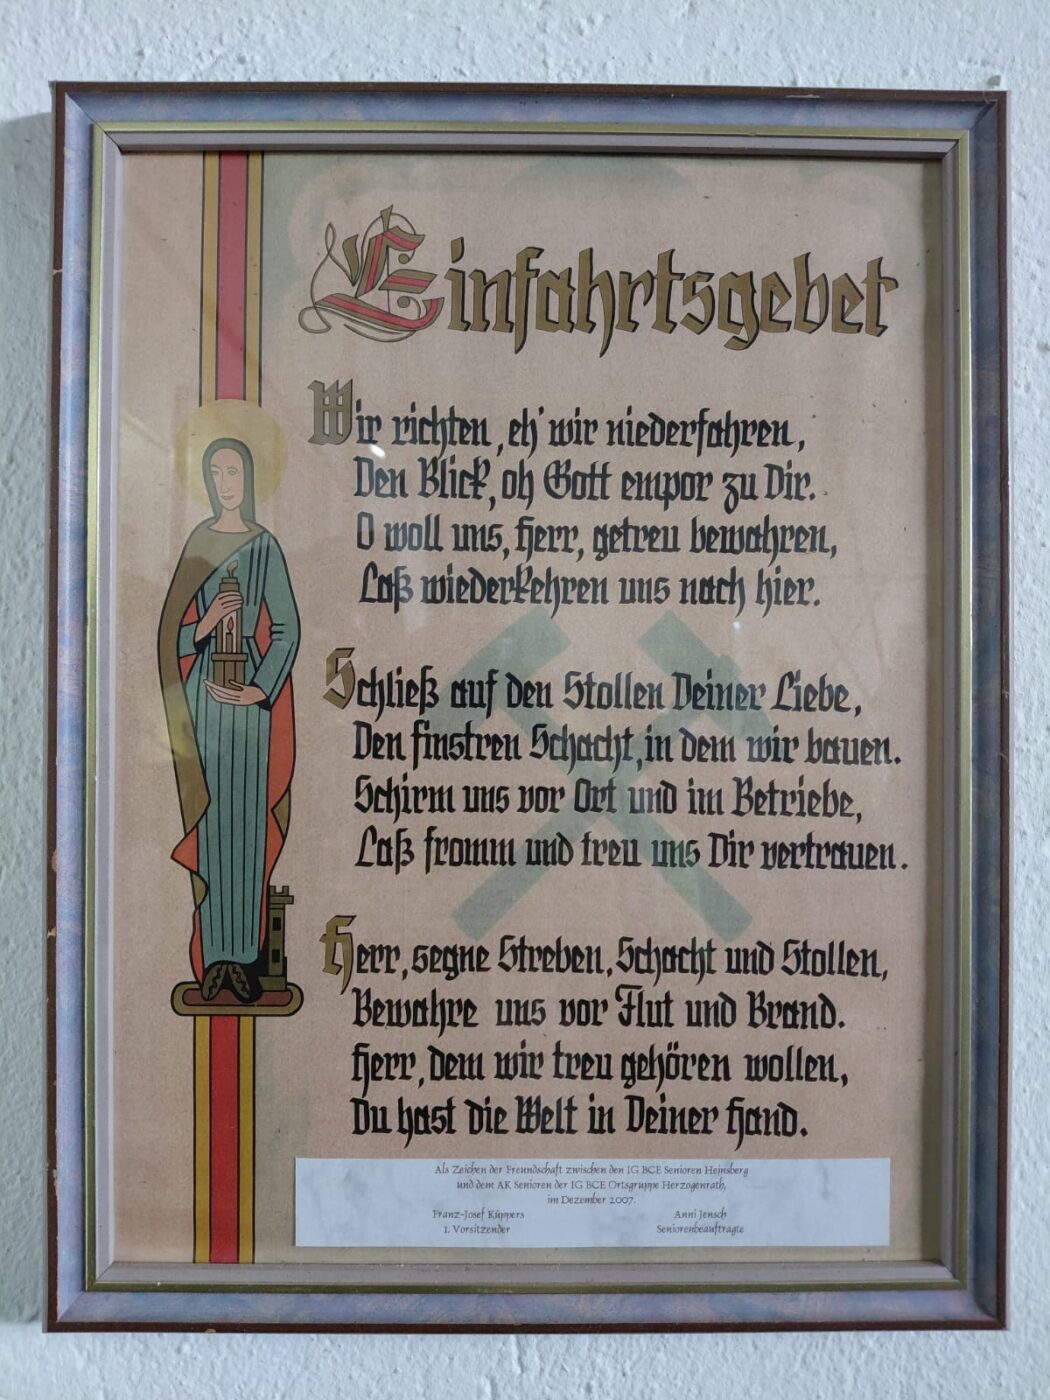 Einfahrtsgebet
Wir richten, eh' wir niederfahren,
Den Blick, oh Gott empor zu Dir.
O woll uns, Herr, getreu bewahren,
Laß wiederkehren uns nach hier.
Schließ auf den Stollen Deiner Liebe,
Den finstren Schacht, in dem wir bauen.
Schirm uns vor Ort und im Betriebe,
Laß fromm und treu uns Dir vertrauen.
Herr, segne Streben, Schacht und Stollen,
Bewahre uns vor Flut und Brand.
Herr, dem wir treu gehören wollen,
Du hast die Welt in Deiner Hand.
Als Zeichen der Freundschaft zwischen den IG BCE Senioren Heinsberg
und dem AK Senioren der IG BCE Ortsgruppe Herzogenrath,
im Dezember 2007.
Franz-Josef Küppers Anni Jensch
1. Vorsitzender Seniorenbeauftragte